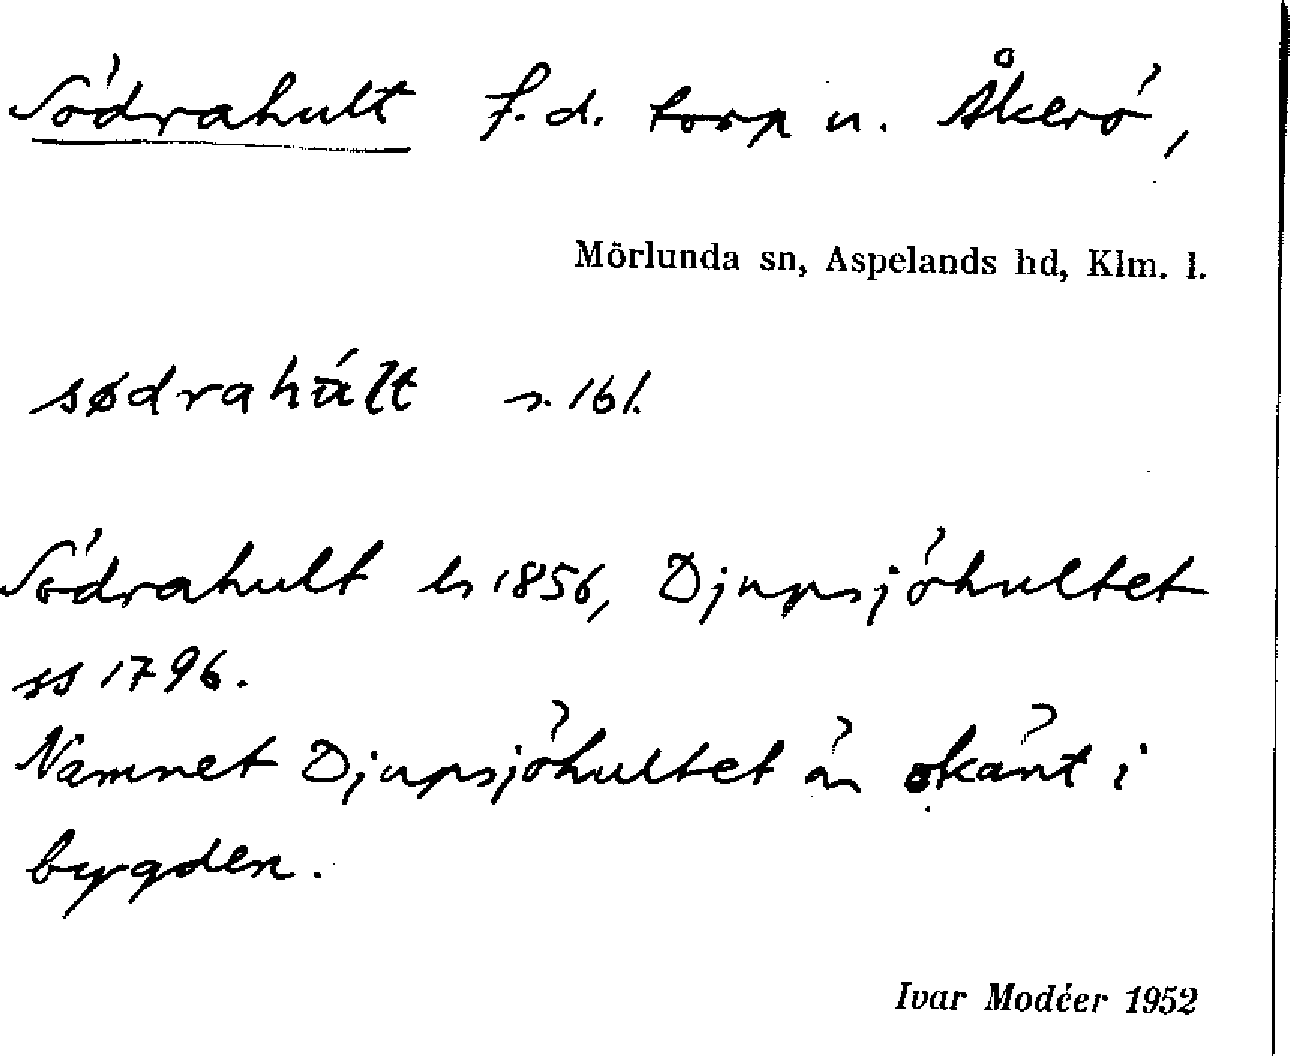 Södrahult f.d. torp u. Åkerö,
Mörlunda sn, Aspelands hd, Klm. l.
sødrahúlt s. 161.
Södrahult ls 1856, Djupsjöhultet
ss 1796.
Namnet Djupsjöhultet är okänt i
bygden.
Ivar Modéer 1952